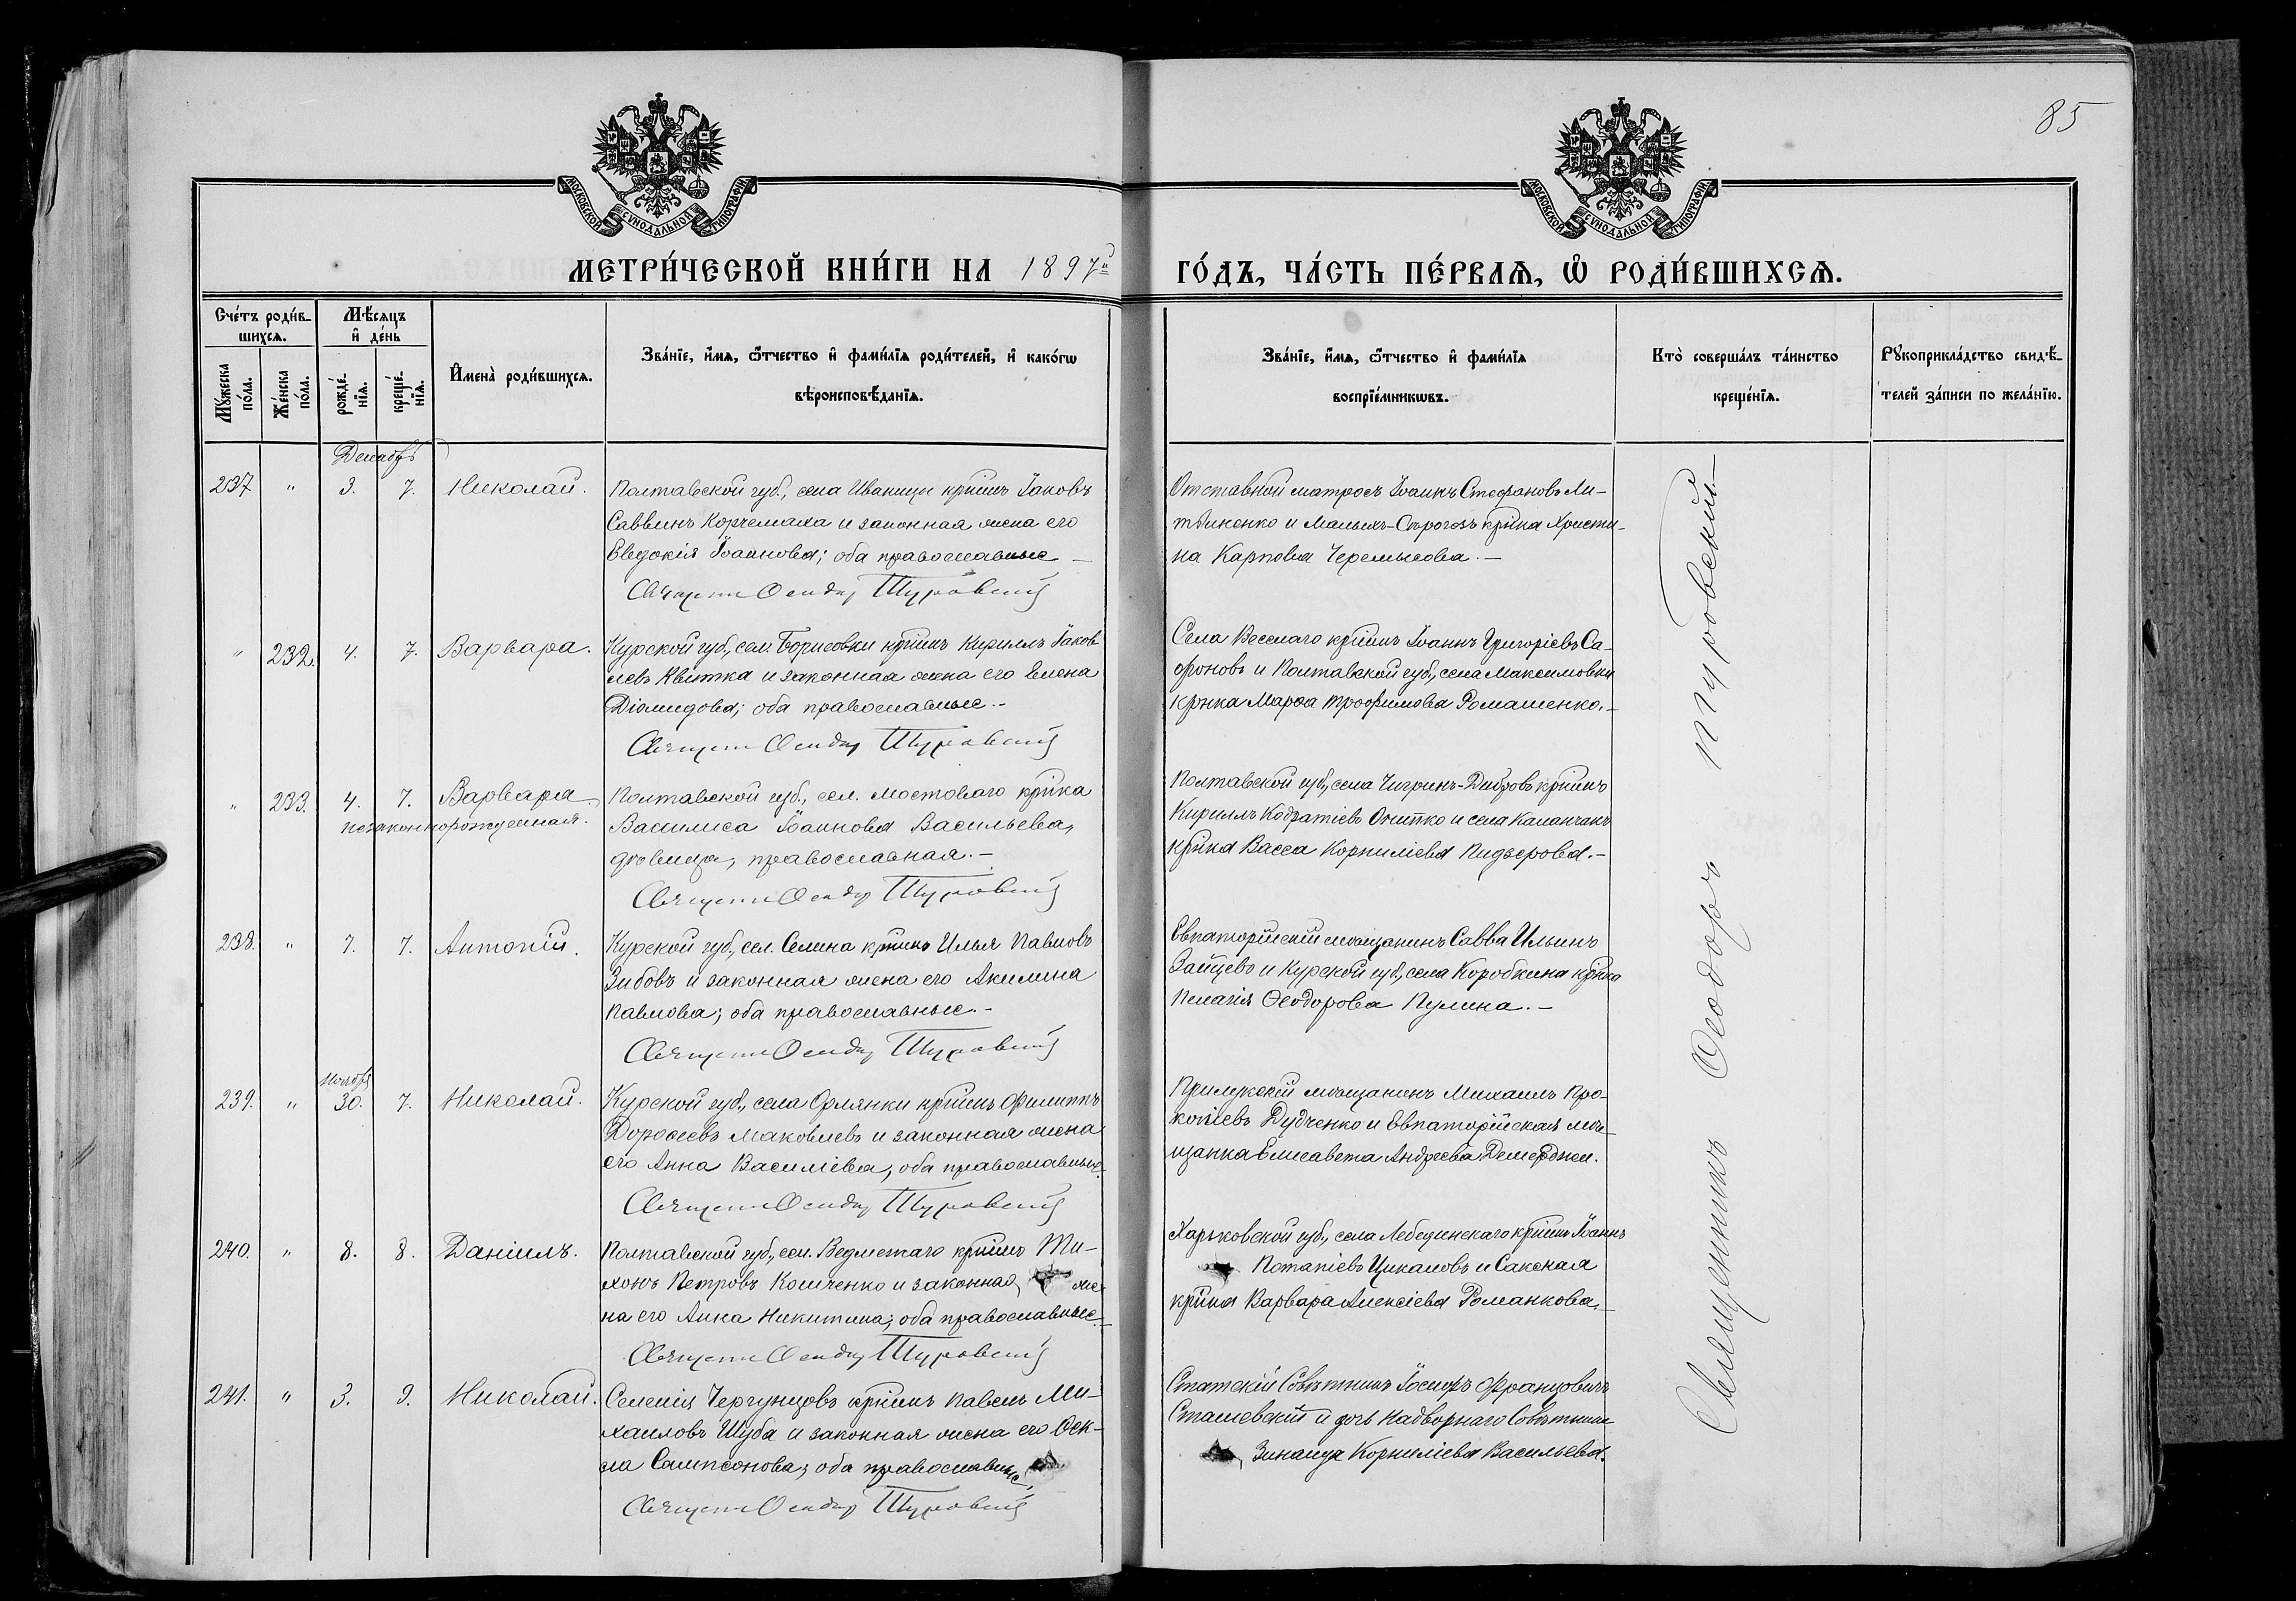 85
МОСКОВСКОЙ СѴНОДАЛЬНОЙ ТИПОГРАФІИ
МОСКОВСКОЙ СѴНОДАЛЬНОЙ ТИПОГРАФІИ
МЕТРИ́ЧЕСКОЙ КНИ́ГИ НА 1897й ГО́ДЪ, ЧА́СТЬ ПЕ́РВАѦ, Ѡ҆ РОДИ́ВШИХСѦ.
Сче́тъ роди́в-
шихсѧ.
Мѣ́сѧцъ
и҆ де́нь
Мꙋ́жеска
по́ла.
Же́нска
по́ла.
рожде́-
нїѧ.
креще́-
нїѧ.
И҆мена̀ роди́вшихсѧ.
Зва́нїе, и҆́мѧ, ѻ҆́тчество и҆ фами́лїѧ роди́телей, и҆ како́гѡ
вѣроисповѣ́данїѧ.
Зва́нїе, и҆́мѧ, ѻ҆́тчество и҆ фами́лїѧ
воспрїе́мникѡвъ.
Кто̀ соверша́лъ та́инство
креще́нїѧ.
Рꙋкоприкла́дство свидѣ́-
телей за́писи по жела́нїю.
Декабрь
237 " 3. 7. Николай.
Полтавской губ., села Иваницы кр̃нинъ Іаковъ
Саввинъ Корчемаха и законная жена его
Евдокія Іоаннова; оба православные –
Священн Ѳеодор Шуровскій
Отставной матросъ Іоаннъ Стефановъ Ли-
твиненко и Малыхъ-Строгозъ кр̃нка Христи-
на Карпова Черемысова. –
" 232. 4. 7. Варвара.
Курской губ., сел. Борисовки кр̃нинъ Кириллъ Іаков
левъ Квитка и законная жена его Елена
Діомидова; оба православные. –
Священн Ѳеодор Шуровскій
Села Веселаго кр̃нинъ Іоаннъ Григоріевъ Са-
фроновъ и Полтавской губ., села Максимовки
кр̃нка Марѳа Трофимова Ромашенко. –
" 233. 4. 7. Варвара
незаконнорожденная.
Полтавской губ., сел. Мостоваго кр̃нка
Василиса Іоаннова Васильева,
дѣвица, православная. –
Священн Ѳеодор Шуровскій
Полтавской губ., села Чигринъ-Дибровъ кр̃нинъ
Кириллъ Кодратіевъ Онипко и села Каланчакъ
кр̃нка Васса Корниліева Пидзерова. –
238. " 7. 7. Антоній.
Курской губ., сел. Селина кр̃нинъ Илья Павловъ
Зибовъ и законная жена его Акилина
Павлова; оба православные. –
Священн Ѳеодор Шуровскій
Евпаторійскій мѣщанинъ Савва Ильинъ
Зайцевъ и Курской губ., села Коробкина кр̃нка
Пелагія Ѳеодорова Пулина. –
Ноябрь
239. " 30. 7. Николай.
Курской губ., села Орлянки кр̃нинъ Филиппъ
Дороѳеевъ Маковлевъ и законная жена
его Анна Василіева, оба православные.
Священн Ѳеодор Шуровскій
Прилукскій мѣщанинъ Михаилъ Про-
копіевъ Дудченко и Евпаторійская мѣ-
щанка Елисавета Андреева Демерджи.
240. " 8. 8. Даніилъ.
Полтавской губ., сел. Ведмежаго кр̃нинъ Ти-
хонъ Петровъ Компенко и законная же-
на его Анна Никитина; оба православные. –
Священн Ѳеодор Шуровскій
Харьковской губ., села Лебединскаго кр̃нинъ Іоаннъ
Потапіевъ Цикаловъ и Сакская
кр̃нка Варвара Алексіева Романкова. –
241. " 3. 9. Николай.
Селенія Чергунцовъ кр̃нинъ Павелъ Ми-
хаиловъ Шуба и законная жена его Ѳек-
ла Сампсонова; оба православные.
Священн Ѳеодор Шуровскій
Статскій Совѣтникъ Іосифъ Францовичъ
Сташевскій и дочь Надворнаго Совѣтника
Зинаида Корниліева Васильева.
Священникъ Ѳеодоръ Шуровскій –